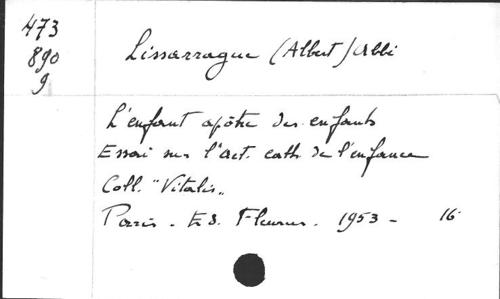 473
890
9
Lissarrague (Albert) Abbé
L'enfant apôtre des enfants
Essai sur l'act. cath. de l'enfance
Coll. "Vitalis"
Paris - Ed. Fleurus. 1953 - 16